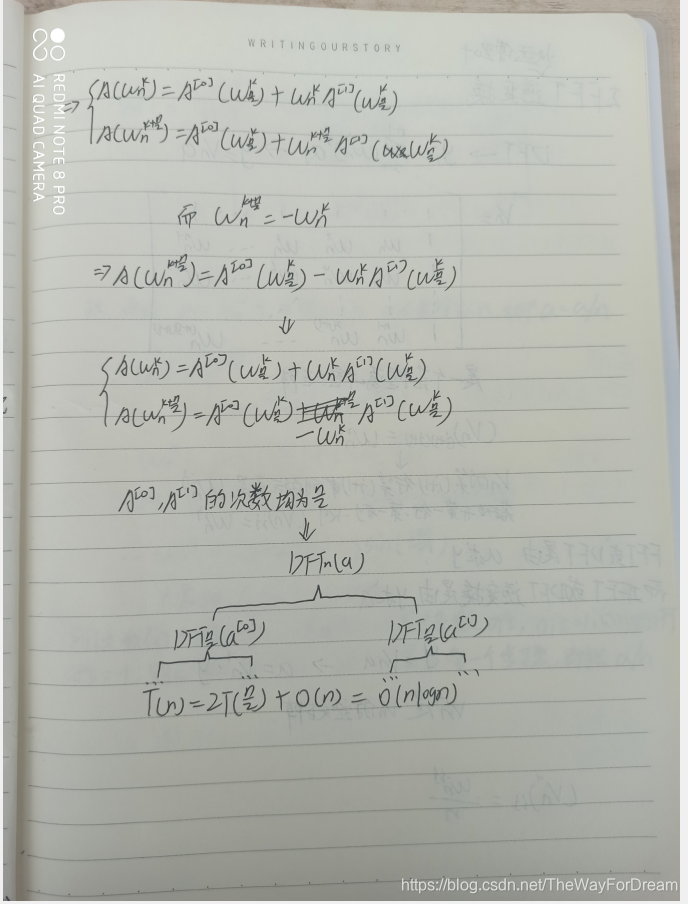 WRITINGOURSTORY
REDMI NOTE 8 PRO
AI QUAD CAMERA
⇒ { A(ωₙᵏ) = A^[0](ω_{n/2}^k) + ωₙᵏ A^[1](ω_{n/2}^k)
A(ωₙ^{k+n/2}) = A^[0](ω_{n/2}^k) + ωₙ^{k+n/2} A^[1](ω_{n/2}^k)
而 ωₙ^{k+n/2} = -ωₙᵏ
⇒ A(ωₙ^{k+n/2}) = A^[0](ω_{n/2}^k) - ωₙᵏ A^[1](ω_{n/2}^k)
⇓
{ A(ωₙᵏ) = A^[0](ω_{n/2}^k) + ωₙᵏ A^[1](ω_{n/2}^k)
A(ωₙ^{k+n/2}) = A^[0](ω_{n/2}^k) A^[1](ω_{n/2}^k)
-ωₙᵏ
A^[0], A^[1] 的次数均为 n/2
⇓
DFTₙ(a)
DFT_{n/2}(a^[0]) DFT_{n/2}(a^[1])
... ... ... ...
T(n) = 2T(n/2) + O(n) = O(nlogn)
https://blog.csdn.net/TheWayForDream